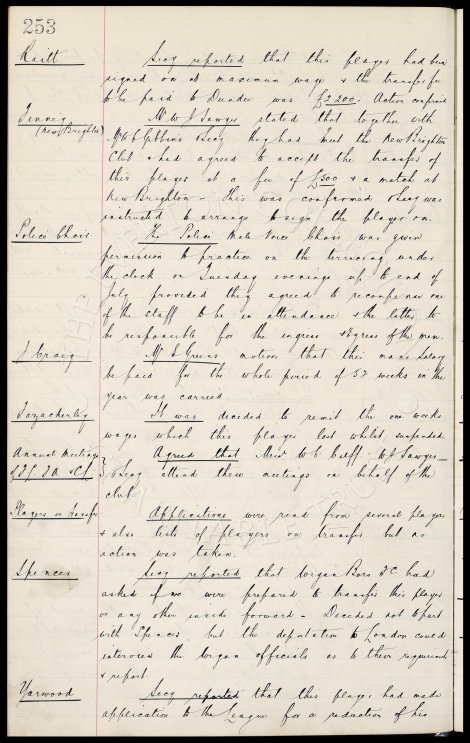 253
Raitt Secy reported that this player had been
signed on at maximum wage & the transfer fee
to be paid to Dundee was £2,200. Action confirmed
Finney Mr W J Sawyer stated that together with
(New Brighton) Mr W C Gibbins & Secy they had met the New Brighton
Club & had agreed to accept the transfer of
this player at a fee of £500 & a match at
New Brighton - This was confirmed & Secy was
instructed to arrange to sign the player on.
Police Choir The Police Male Voice Choir was given
permission to practice on the terracing under
the clock on Tuesday evenings up to end of
July provided they agreed to recompense one
of the staff to be in attendance & the latter to
be responsible for the ingress & egress of the men.
J Craig Mr Greens motion that this mans salary
be paid for the whole period of 52 weeks in the
year was carried.
It was decided to remit the one weeks
wages which this player lost whilst suspended.
Annual Meetings Agreed that Messrs W C Cuff, W J Sawyer
& Secy attend these meetings on behalf of the
club
Players on transfer Applications were read from several players
& also lists of players on transfer but no
action was taken.
Spencer Secy reported that Wigan Boro FC had
asked if we were prepared to transfer this player
or any other inside forward - Decided not to part
with Spencer, but the deputation to London could
interview the Wigan officials as to their requirements
& report
Yarwood Secy reported that this player had made
application to the League for a reduction of his